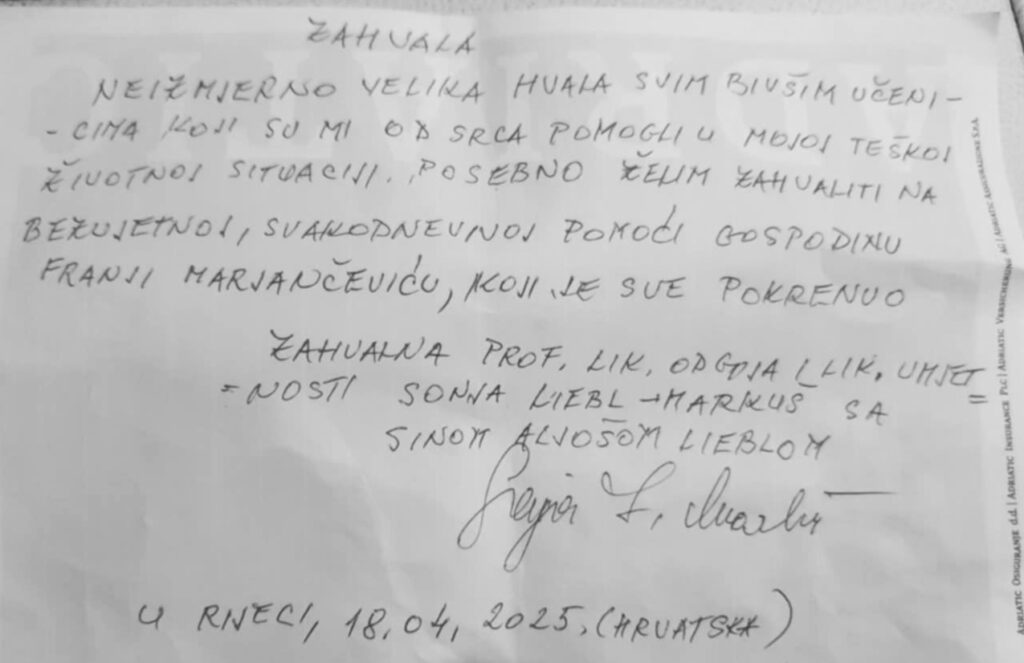 ZAHVALA
NEIZMJERNO VELIKA HVALA SVIM BIVŠIM UČENI-
- CIMA KOJI SU MI OD SRCA POMOGLI U MOJOJ TEŠKOJ
ŽIVOTNOJ SITUACIJI. POSEBNO ŽELIM ZAHVALITI NA
BEZUVJETNOJ, SVAKODNEVNOJ POMOĆI GOSPODINU
FRANJI MARJANČEVIĆU, KOJI JE SVE POKRENUO
ZAHVALNA PROF. LIK. ODGOJA I LIK. UMJET
= NOSTI SONJA LIEBL - MARKUS SA =
SINOM ALJOŠOM LIEBLOM
U RIJECI, 18.04. 2025. (HRVATSKA)
ADRIATIC OSIGURANJE d.d. | ADRIATIC INSURANCE PLC | ADRIATIC VERSICHERUNG AG | ADRIATIC ASSICURAZIONE S.P.A.